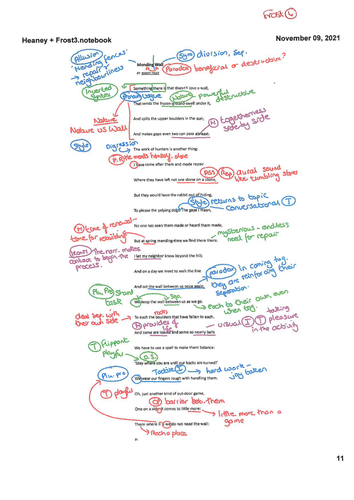 Frost 4
Heaney + Frost3.notebook
November 09, 2021
Allusion
Sym division, Sep.
"Mending fences"
→ repair
neighbourliness
Mending Wall
Paradox beneficial or destructive?
BY ROBERT FROST
Inverted
Syntax
Something there is that doesn't love a wall,
vague
Nature powerful
destructive
That sends the frozen-ground-swell under it,
Nature
Nature vs Wall
And spills the upper boulders in the sun;
togetherness
side by side
And makes gaps even two can pass abreast.
Style Digression
The work of hunters is another thing:
I have come after them and made repair
Ass Rep aural sound
like tumbling stones
Where they have left not one stone on a stone,
But they would have the rabbit out of hiding,
Style returns to topic
conversational T
To please the yelping dogs. The gaps I mean,
No one has seen them made or heard them made,
time of renewal-
time for rebuilding
mysterious - endless
need for repair
But at spring mending-time we find them there.
The narr. makes
contact to begin the
process.
I let my neighbor know beyond the hill;
And on a day we meet to walk the line
Paradox in coming tog.
they are reinforcing their
separation.
And set the wall between us once again.
Shared
task
Sep.
We keep the wall between us as we go.
each to their own, even
when tog.
deal sep. with
their own side
To each the boulders that have fallen to each.
provides
visual I T taking
pleasure
in the activity
And some are loaves and some so nearly balls
T flippant
playful
We have to use a spell to make them balance:
D.S.
'Stay where you are until our backs are turned!'
Tactile I → hard work -
We wear our fingers rough with handling them.
T playful
Oh, just another kind of out-door game,
barrier betw. them
One on a side. It comes to little more:
little more than a
game
There where it is we do not need the wall:
11